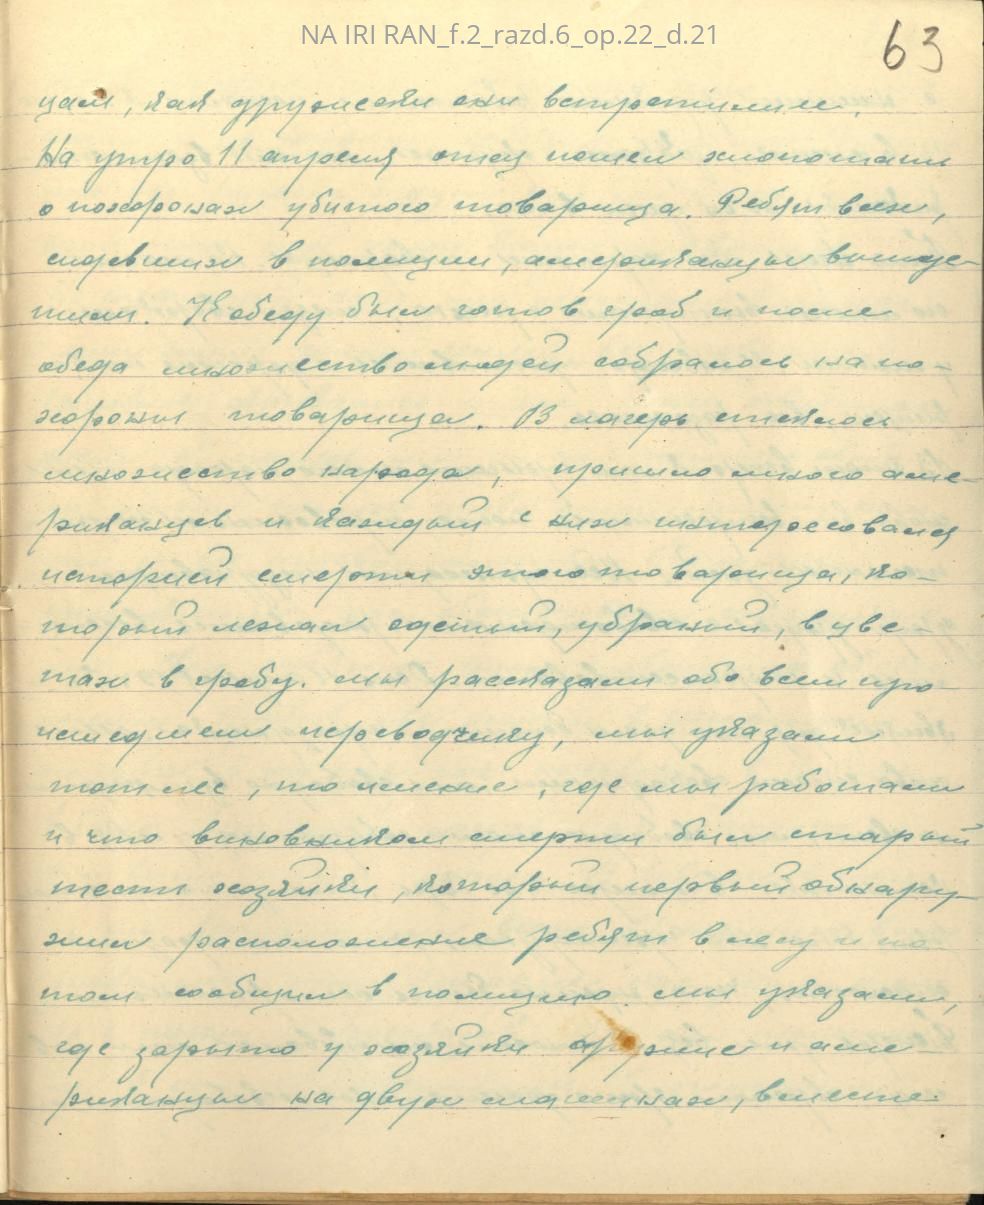 NA IRI RAN_f.2_razd.6_op.22_d.21
63
цам, как дружески они встретили.
На утро 11 апреля отец пошел хлопотати
о похоронах убитого товарища. Ребят всех,
сидевших в полиции, американцы выпус-
тили. К обеду был готов гроб и после
обеда множество людей собралось на по-
хороны товарища. В лагерь стеклось
множество народа, пришло много аме-
риканцев и каждый с них интересовался
историей смерти этого товарища, ко-
торый лежал одетый, убраный, в цве-
тах в гробу. мы рассказали обо всем про
исшедшем переводчику, мы указали
тот лес, то имение, где мы работали
и что виновником смерти был старый
тесть хозяйки, который первый обнару-
жил расположение ребят в лесу и по
том сообщил в полицию. мы указали,
где зарыто у хозяйки оружие и аме-
риканцы на двух машинах, вместе